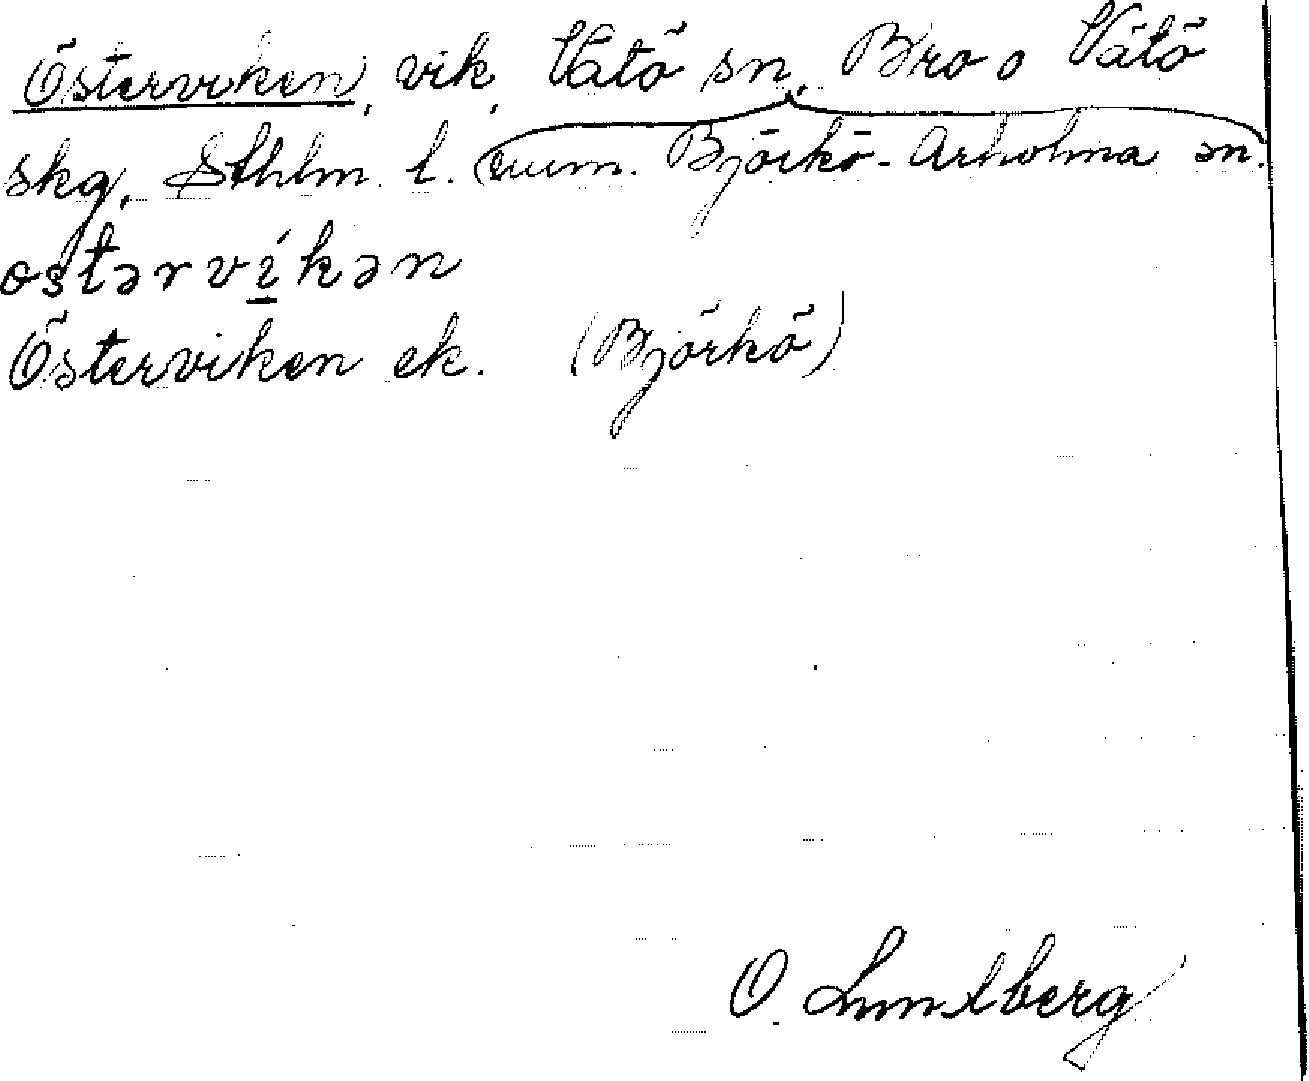 Österviken, vik, Vätö sn, Bro o Vätö
skg, Sthlm. l. (num. Björkö-Arholma sn.
ostərvikən
Österviken ek. (Björkö)
O. Lundberg